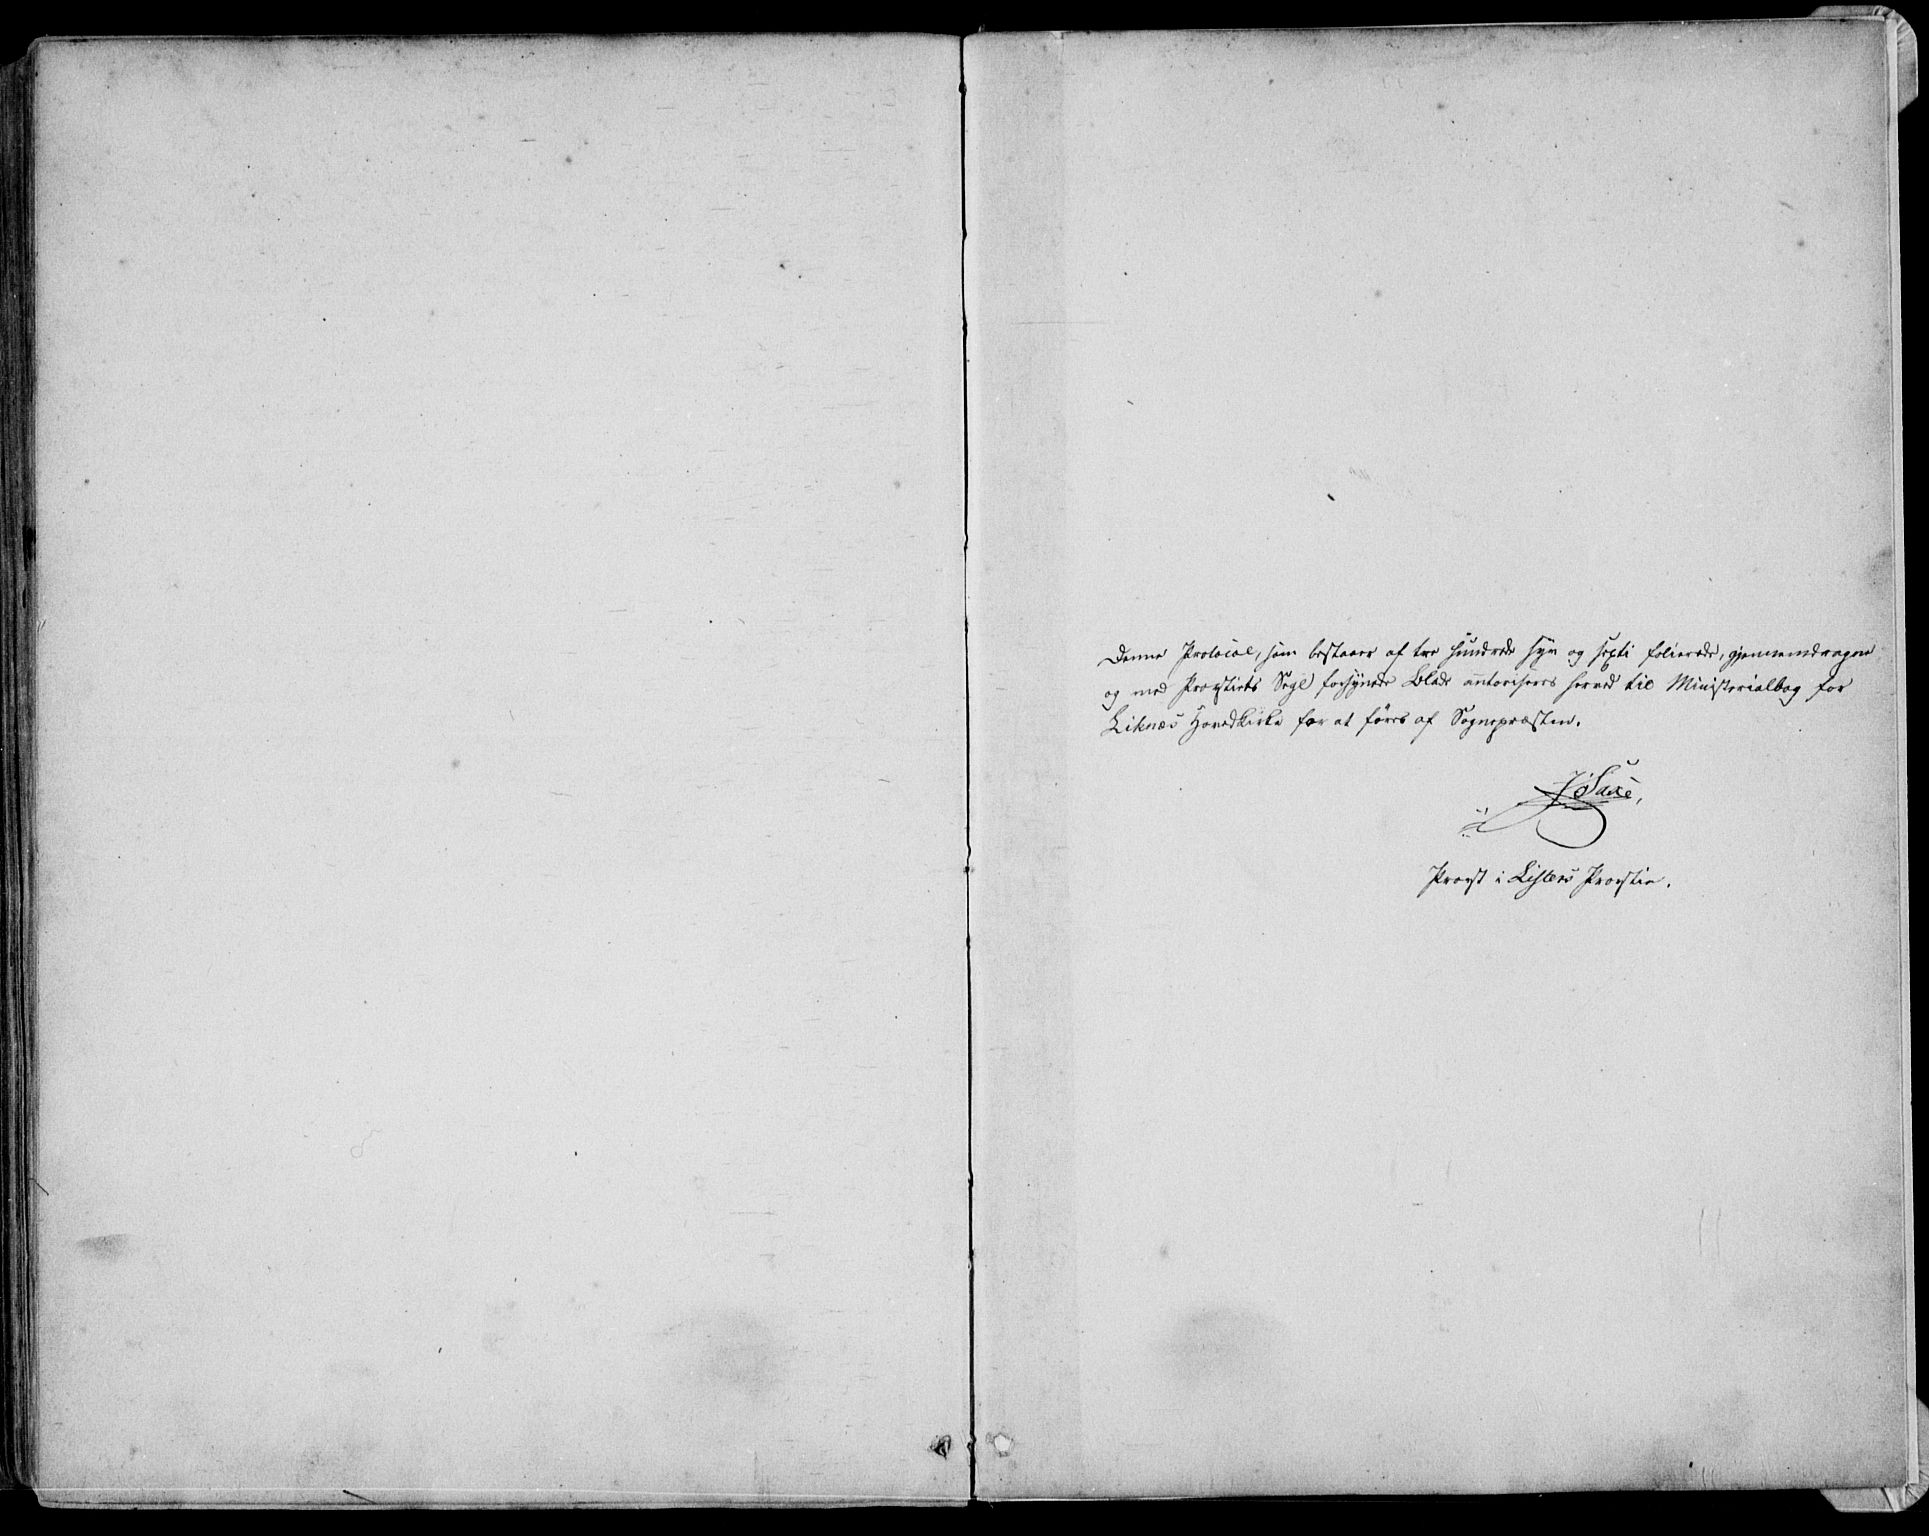 Denne Protocol, som bestaaer af tre hundrede syv og sexti folierede, gjennemdragne
og med Provstiets Segl forsynede Blade autoriseres herved til Ministerialbog for
Liknes Hovedkirke for at føres af Sognepræsten.
J Saxe,
Provst i Listers Provstie.